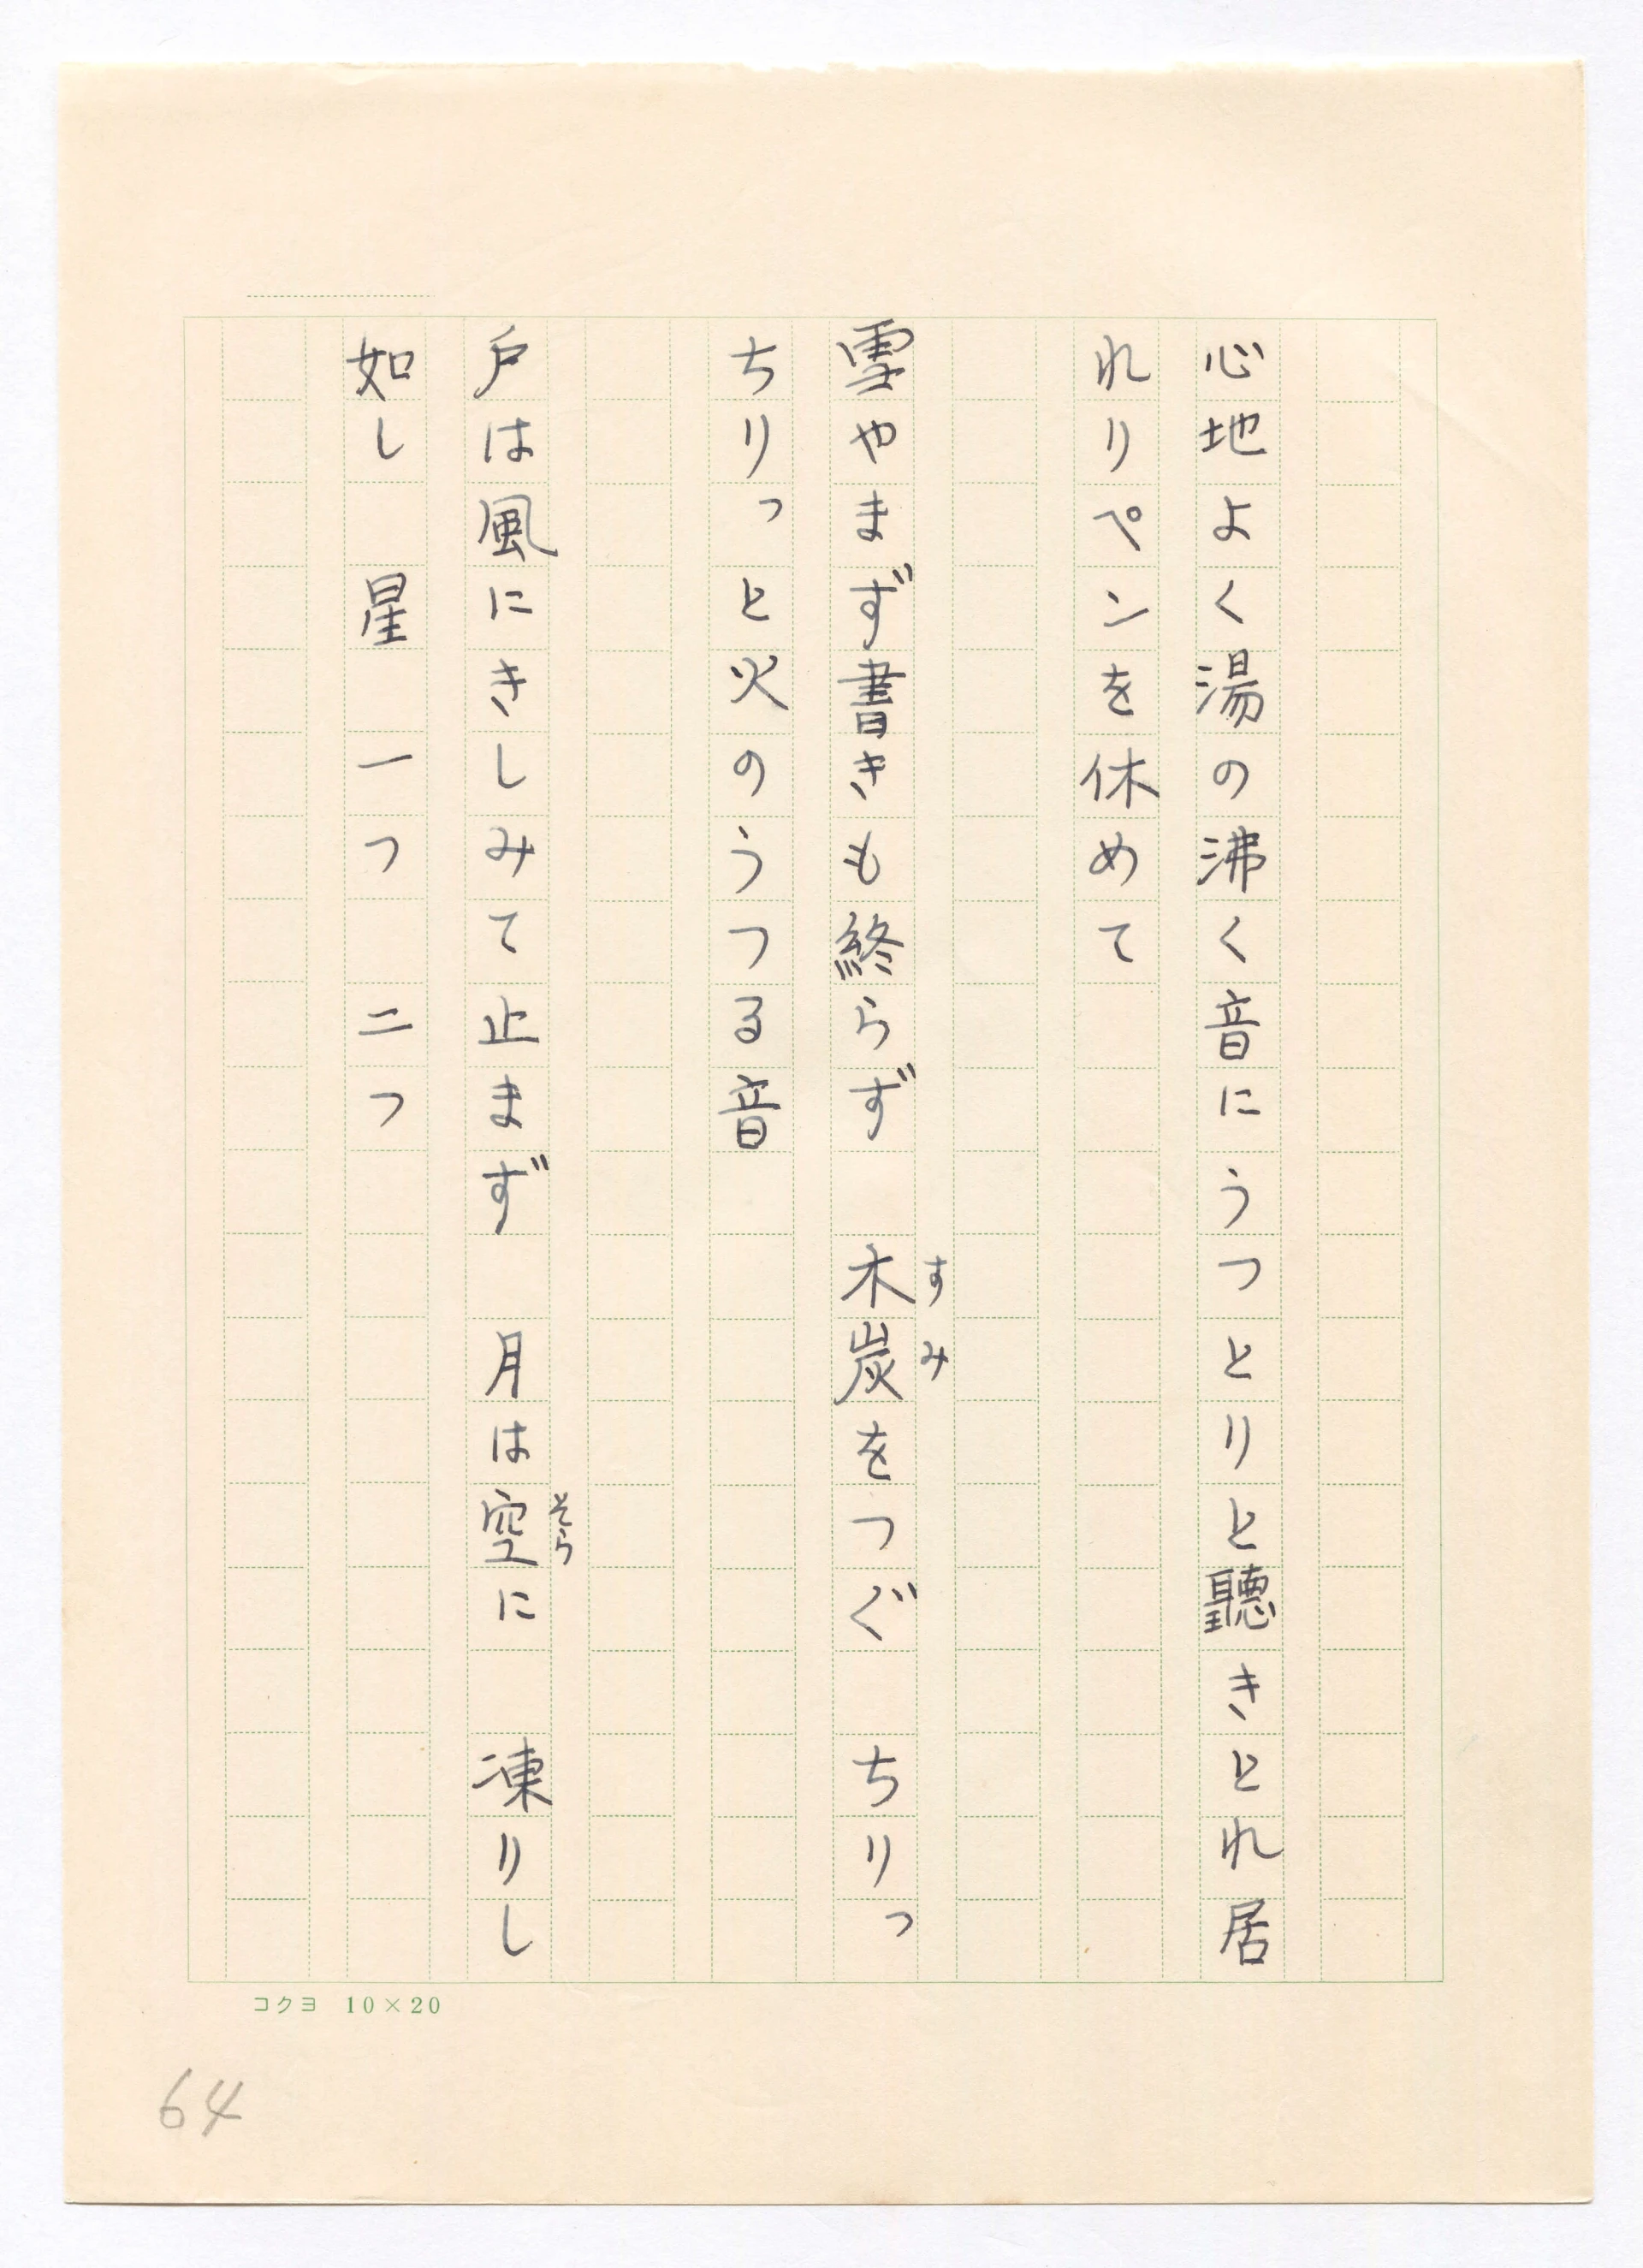 心地よく湯の沸く音にうつとりと聽きとれ居
れりペンを休めて
雪やまず書きも終らず　木炭をつぐ　ちりっ
すみ
ちりっと火のうつる音
戸は風にきしみて止まず　月は空に　凍りし
そら
如し　星　一つ　二つ
コクヨ 10×20
64